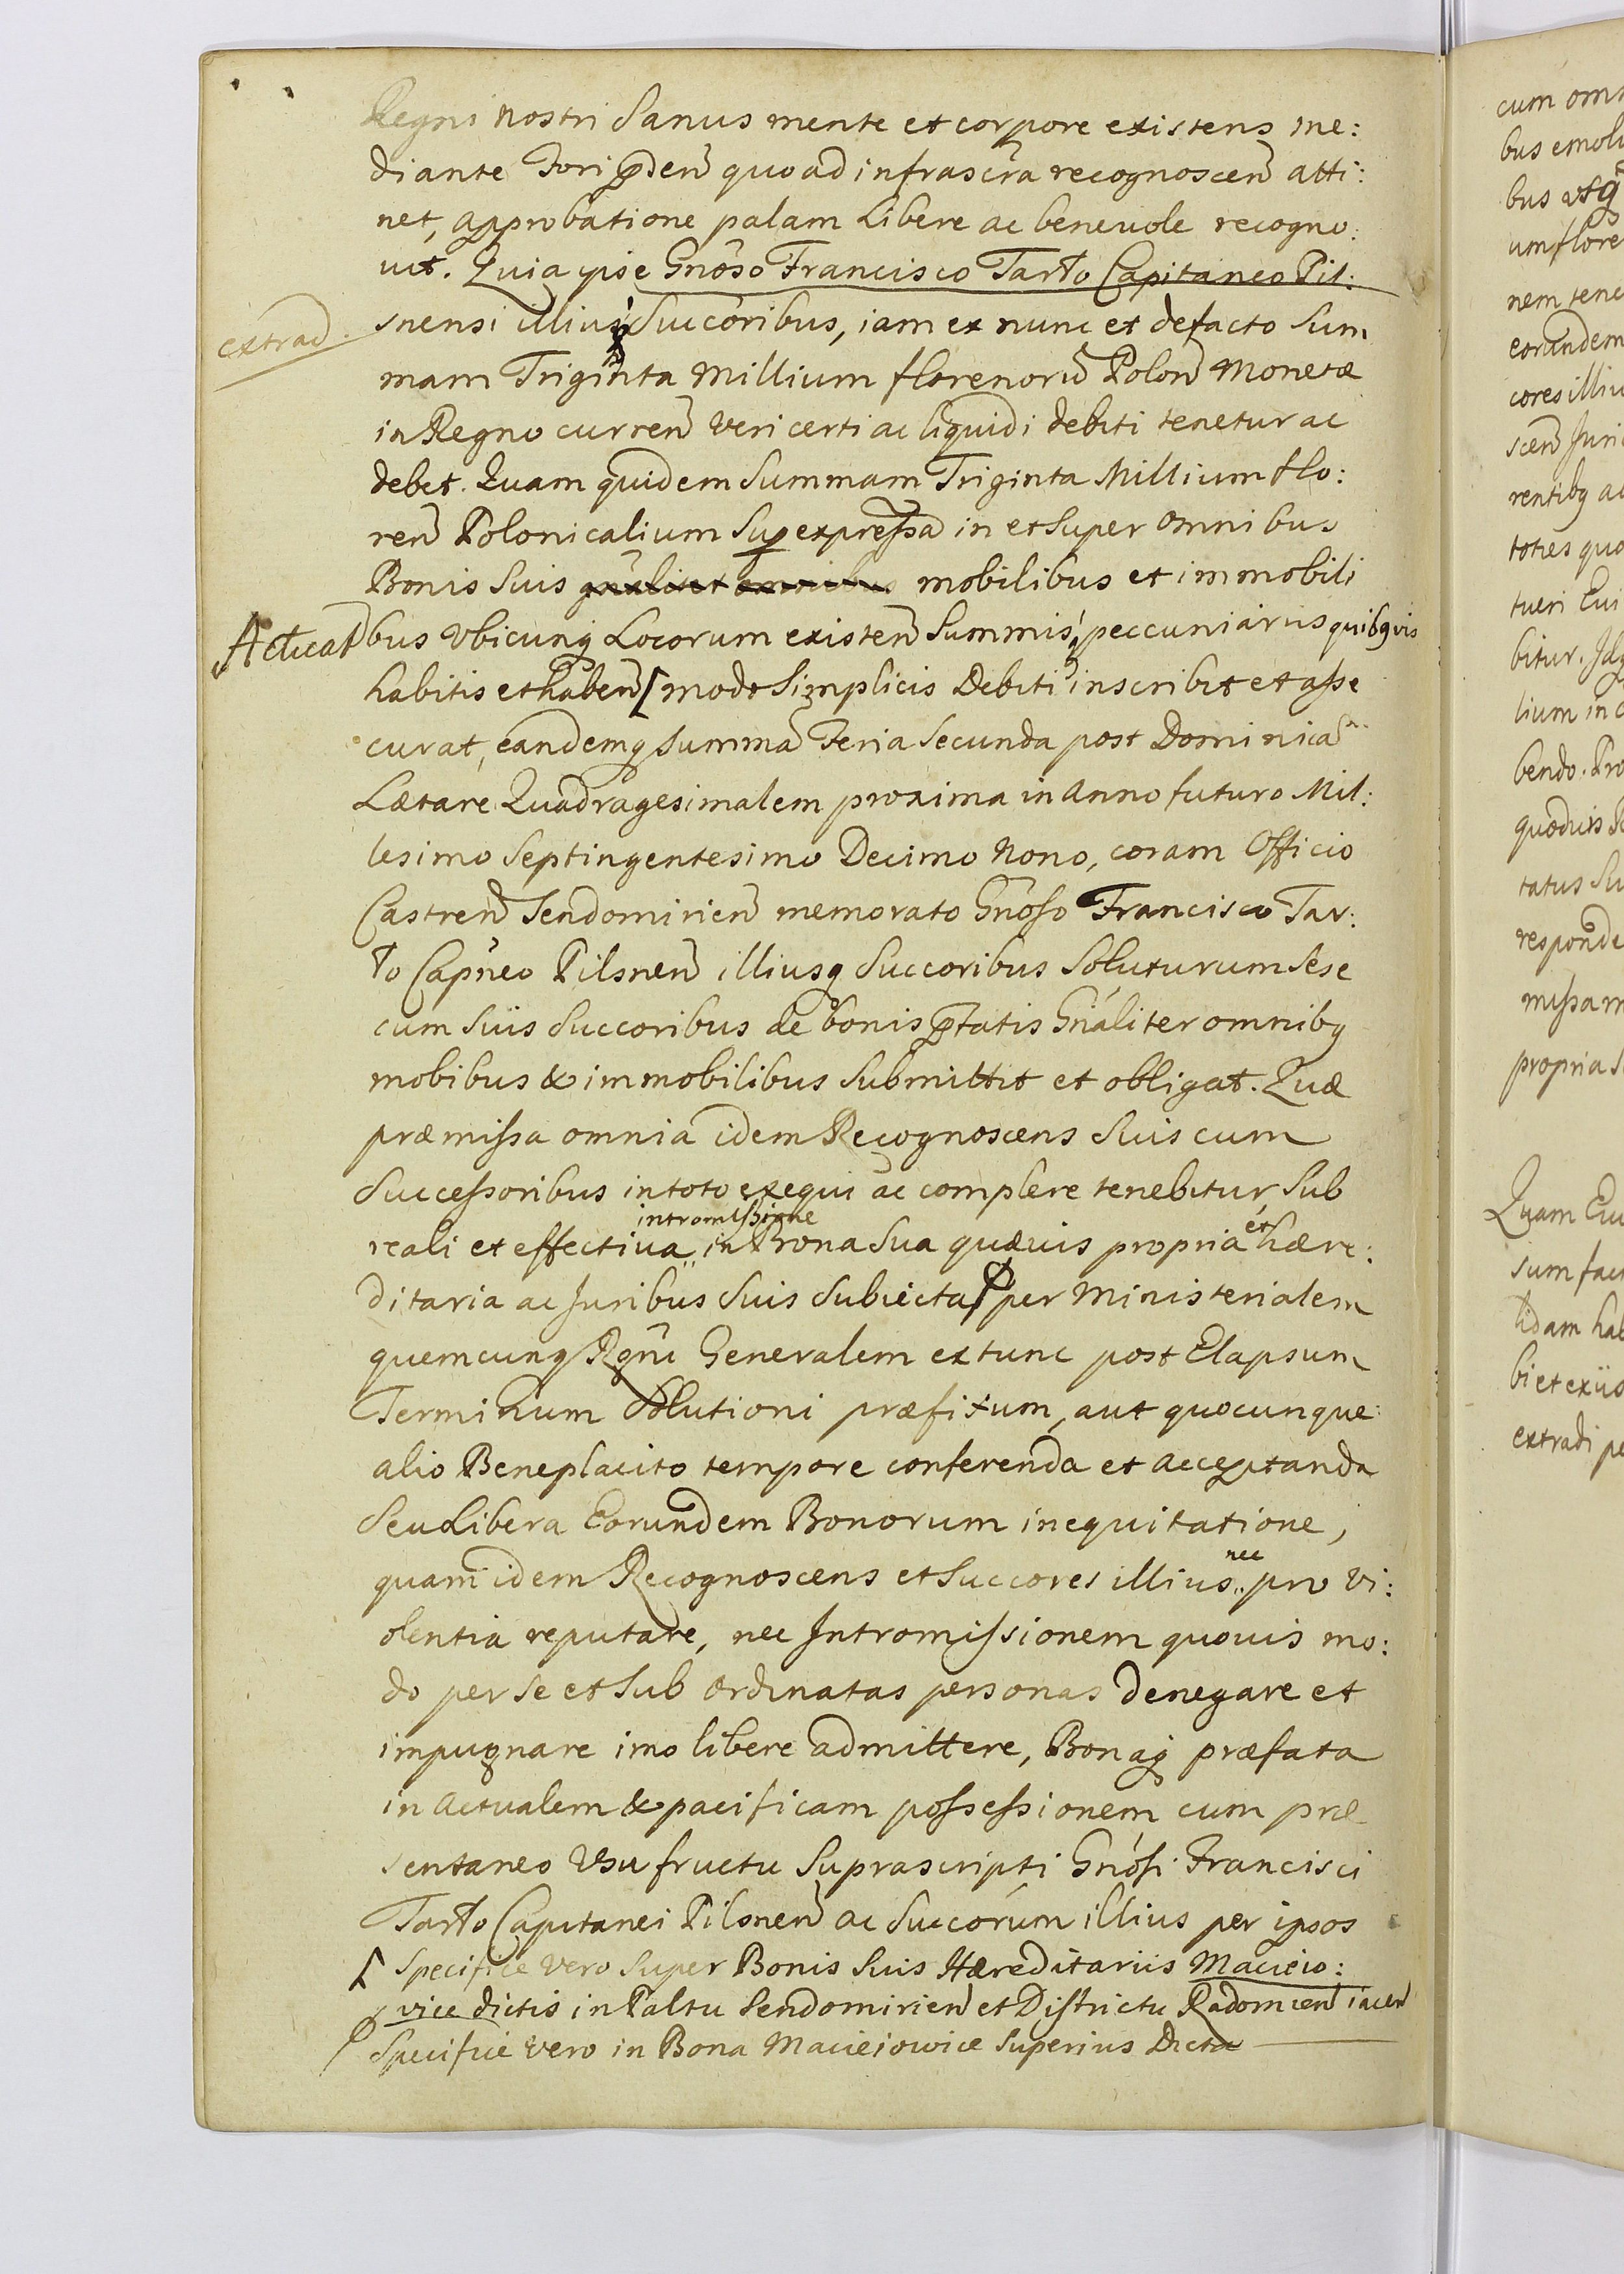 Regni nostri Sanus mente et corpore existens me:
diante Fori p̃den̄ quoad infrascr̃a recognoscen̄ atti:
net, approbatione palam Libere ac beneuole recogno:
uit. Quia ipse Gnoso Francisco Tarło Capitaneo Pil:
extrad.
snensi illiusq́ Succoribus, iam ex nunc et de facto Sum
mam Triginta Millium florenorū Polon̄ Monetæ
in Regno curren̄ veri certi ac liquidi debiti tenetur ac
debet. Quam quidem Summam Triginta Millium flo:
ren̄ Polonicalium Sup̱expreſsa in et Super omnibus
Bonis Suis gñaliter omnibus mobilibus et immobili
Acticat̄
bus Vbicunq́ Locorum existen̄ Summisq́ peccuniariis quibq́vis
habitis et haben̄ [ modo Simplicis Debiti inscribit et aſse
curat, eandemq́ summā Feria Secunda post Dominicā
Lætare Quadragesimalem proxima in Anno futuro Mil:
lesimo Septingentesimo Decimo Nono, coram Officio
Castren̄ Sendomirien̄ memorato Gnõso Francisco Tar:
ło Capñeo Pilsnen̄ illiusq́ Succoribus Soluturum Sese
cum Suis Succoribus de bonis p̃fatis Gñaliter omnibq́
mobibus & immobilibus Submittit et obligat. Quæ
præmiſsa omnia idem Recognoscens Suis cum
Succeſsoribus in toto exequi ac complere tenebitur, Sub
intromiſsione
et
reali et effectiua in Bona Sua quæuis propria hære:
ditaria ac Juribus Suis Subiecta ₱ per Ministerialem
quemcunq́ Rgñi Generalem extunc post Elapsum
Terminum Solutioni præfixum, aut quocunque
alio Beneplacito tempore conferenda et acceptanda
Seu Libera Eorundem Bonorum inequitatione,
nec
quam idem Recognoscens et Succores illius pro vi:
olentia reputare, nec Intromiſsionem quouis mo:
do per se et Sub ordinatas personas denegare et
impugnare imo libere admittere, Bonaq́ præfata
in actualem & pacificam poſseſsionem cum præ
sentaneo Vsu fructu Suprascripti Gnósi Francisci
Tarło Capitanei Pilsnen̄ ac Succorúm illius per ipsos
[ Specifice vero Super Bonis Suis Hæreditariis Macieio:
vice dictis in Paltu Sendomirien̄ et Districtu Radomien̄ iacen̄
₱ Specifice vero in Bona Macieiowice Superius Dicta
cum om
bus emol
bus vsq́
um flore
nem tene
eorundem
cores illiu
scen̄ Juri
rentibq́ ac
toties quo
tueri Eui
bitur. Idq́
lium in
bendo. Pro
quoduis
tatus Su
responde
miſsam
propria S
Quam Eui
sum fac
lidam hab
bi et exiis
extradi pe